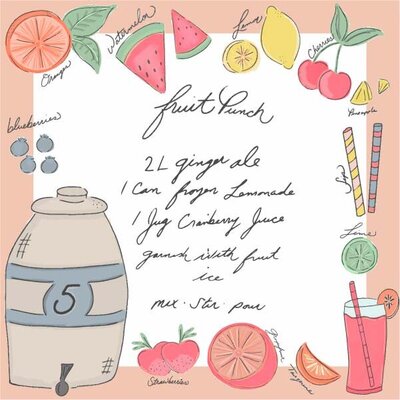 Orange
Watermelon
Lemon
Cherries
Pineapple
blueberries
fruit Punch
2L ginger ale
1 Can frozen Lemonade
1 Jug Cranberry Juice
garnish with fruit
ice
mix · stir · pour
Sip
Lime
5
Strawberries
Grapefruit
Tangerine